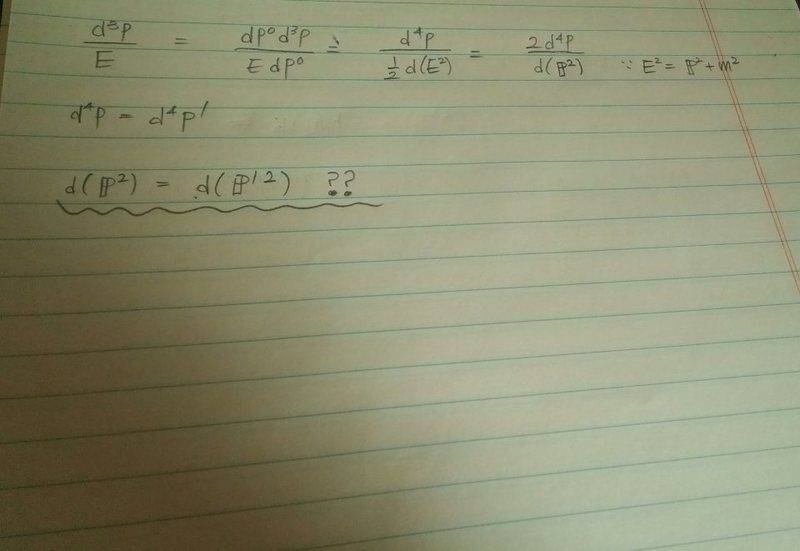 d³p/E = dp⁰d³p/E dp⁰ = d⁴p/½ d(E²) = 2d⁴p/d(ℙ²) ∵ E² = ℙ² + m²
d⁴p = d⁴p'
d(ℙ²) = d(ℙ'²) ??